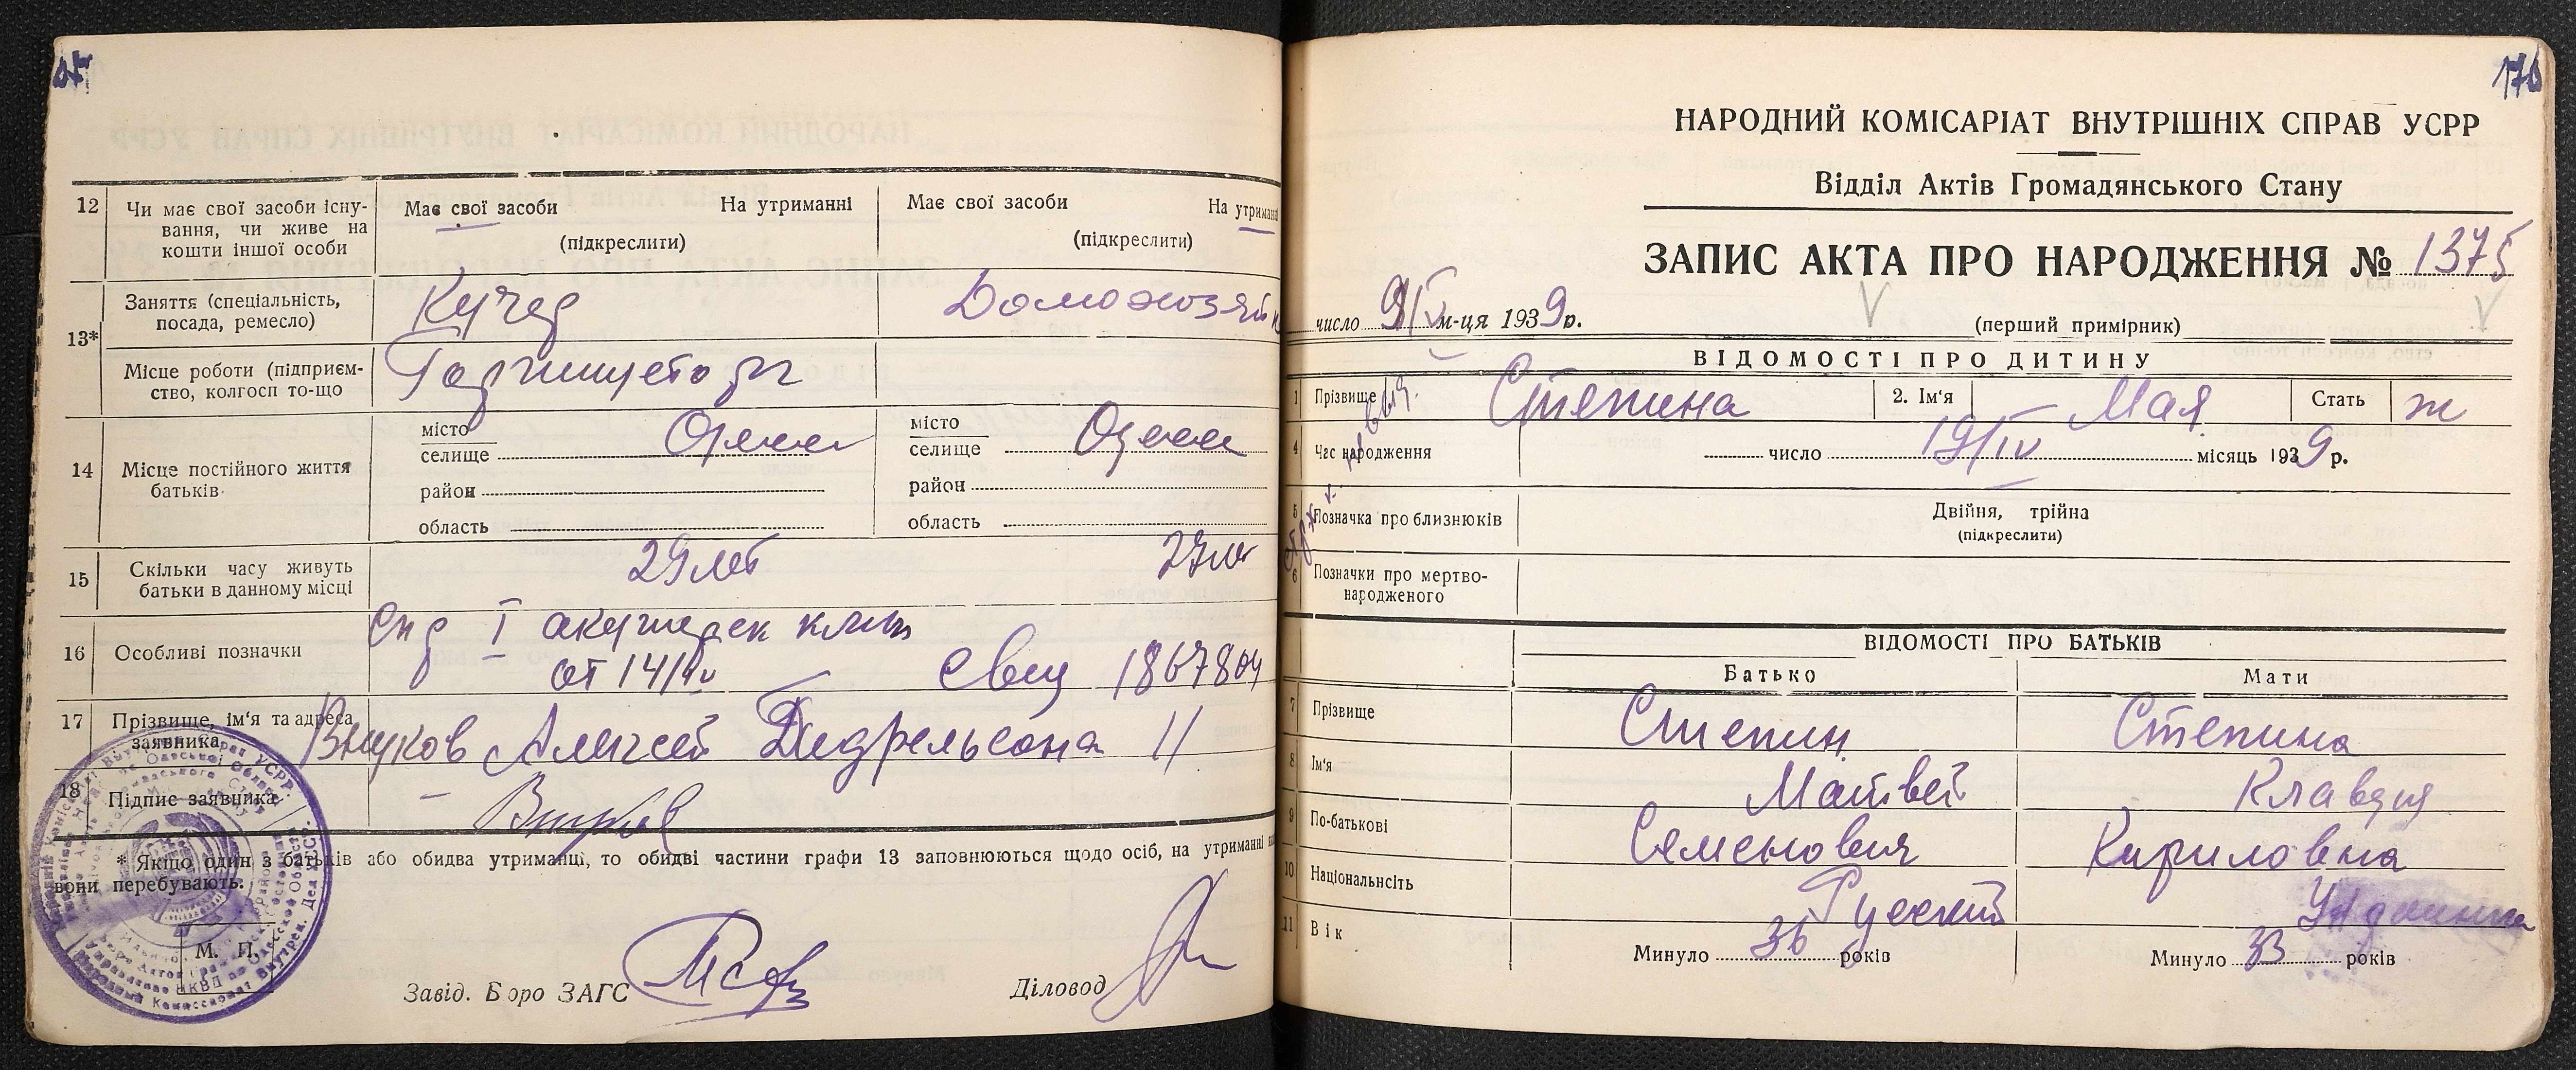 12
Чи має свої засоби існу-
вання, чи живе на
кошти іншої особи
Має свої засоби На утриманні
(підкреслити)
Має свої засоби На утриманні
(підкреслити)
13*
Заняття (спеціальність,
посада, ремесло)
Кучер
Домохозяйк
Місце роботи (підприєм-
ство, колгосп то-що
14
Місце постійного життя
батьків
місто
селище Одесса
район
область
місто
селище Одесса
район
область
15
Скільки часу живуть
батьки в данному місці
29 лет
16
Особливі позначки
Спр I акушерск клин
от 14/IV свид 1867804
17
Прізвище, ім'я та адреса
заявника
Внуков Алексей 11
18
Підпис заявника
Внуков
* Якщо один з батьків або обидва утриманці, то обидві частини графи 13 заповнюються щодо осіб, на утриманні
вони перебувають.
М. П.
Завід. Бюро ЗАГС
Діловод
170
НАРОДНИЙ КОМІСАРІАТ ВНУТРІШНІХ СПРАВ УСРР
Відділ Актів Громадянського Стану
ЗАПИС АКТА ПРО НАРОДЖЕННЯ № 1375
число м-ця 1939р.
(перший примірник)
ВІДОМОСТІ ПРО ДИТИНУ
1 Прізвище Степина 2. Ім'я Мая Стать ж
4 Час народження число 19/IV місяць 1939р.
5 Позначка про близнюків
Двійня, трійна
(підкреслити)
6 Позначки про мертво-
народженого
ВІДОМОСТІ ПРО БАТЬКІВ
Батько Мати
7 Прізвище Степин Степина
8 Ім'я Матвей Клавдия
9 По-батькові Семенович Кириловна
10 Національнсіть Русский
11 Вік Минуло 36 років Минуло 33 років